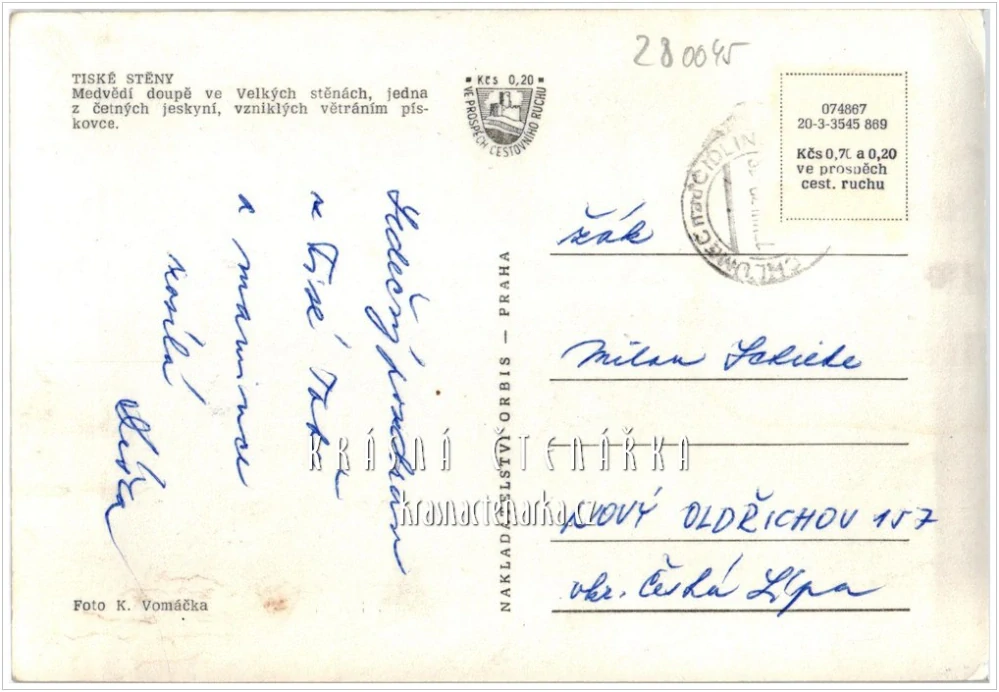 280045
TISKÉ STĚNY
Medvědí doupě ve Velkých stěnách, jedna
z četných jeskyní, vzniklých větráním pís-
kovce.
Kčs 0,20
VE PROSPĚCH CESTOVNÍHO RUCHU
074867
20-3-3545 869
Kčs 0,70 a 0,20
ve prospěch
cest. ruchu
CHLUMEC nad CIDLINOU
Srdečný pozdrav
z Tisé
a mamince
posílá
NAKLADATELSTVÍ ORBIS — PRAHA
žák
Milan
NOVÝ OLDŘICHOV 157
okr. Česká Lípa
Foto K. Vomáčka
KRÁSNÁ ČTENÁŘKA
krasnactenarka.cz